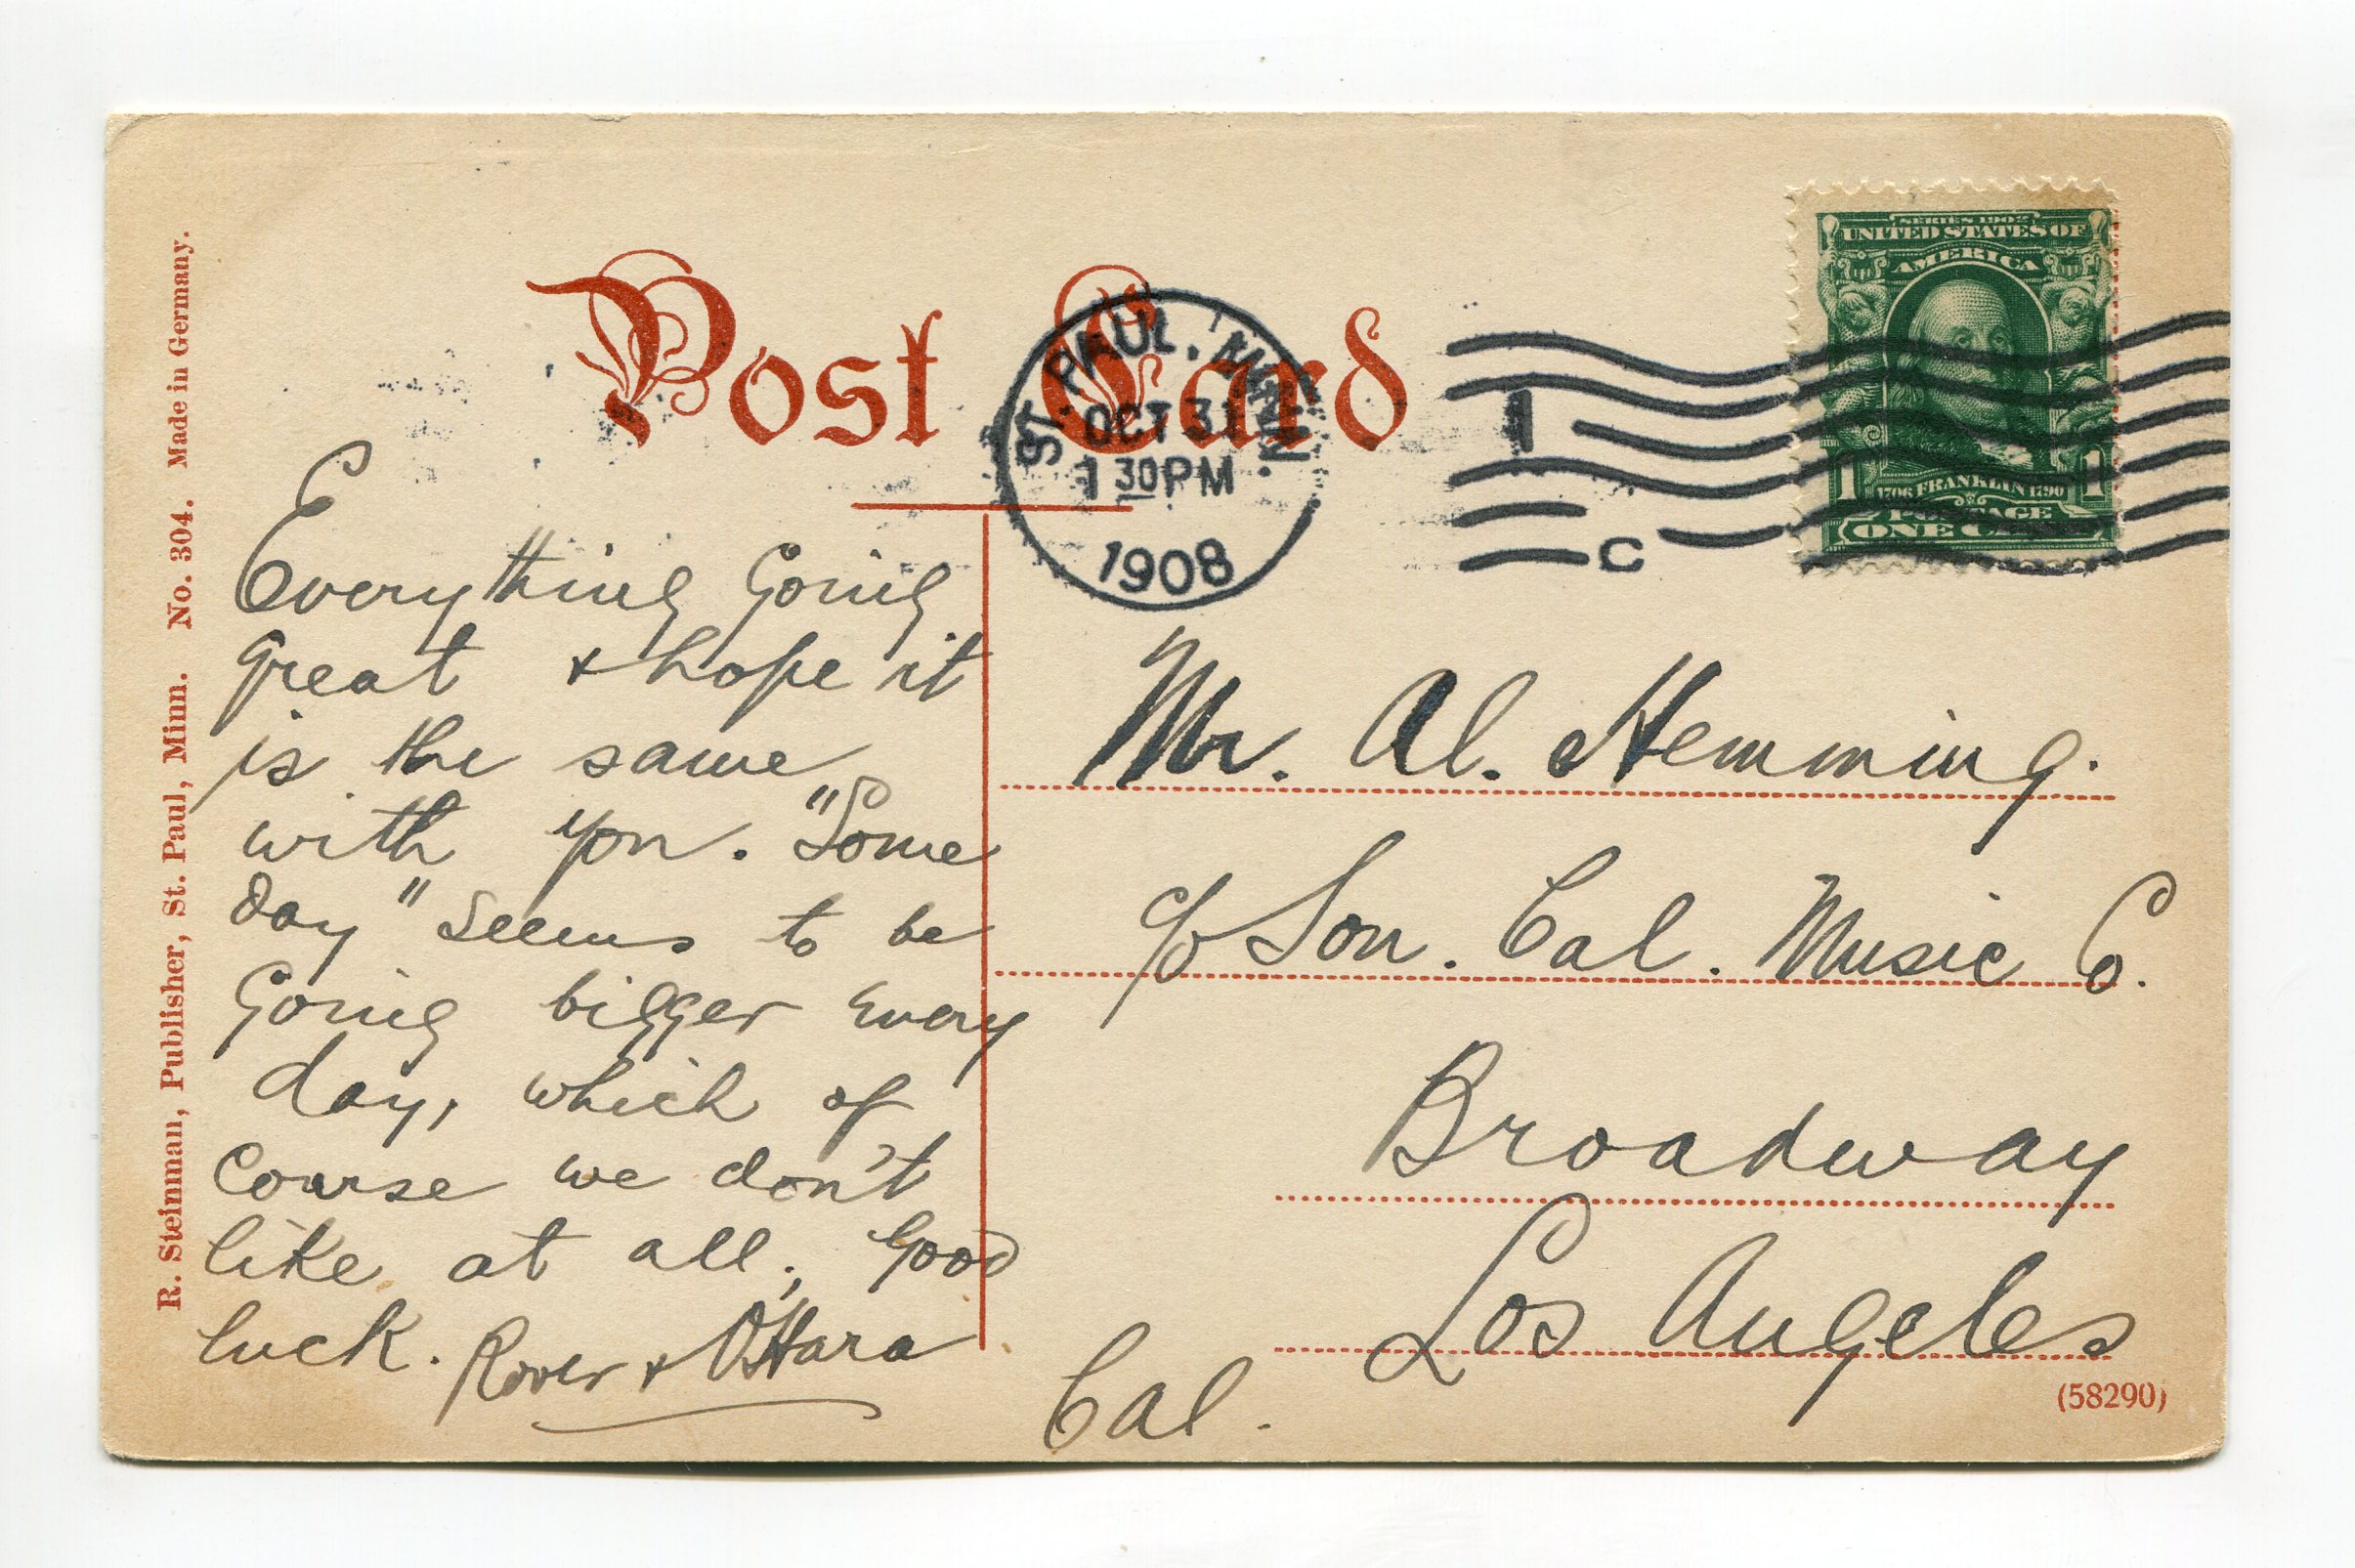 Post Card
ST. PAUL, MINN.
OCT 31
1 30 PM
1908
1
C
SERIES 1902
UNITED STATES OF
AMERICA
1 1706 FRANKLIN 1790 1
POSTAGE
ONE CENT
R. Steinman, Publisher, St. Paul, Minn. No. 304. Made in Germany.
Everything Going
great & hope it
is the same
with you. "Some
day" seems to be
Going bigger every
day, which of
course we don't
like at all, Good
luck. Rover & O'Hara
Mr. Al. Hemming.
c/o Sou. Cal. Music Co.
Broadway
Los Angeles
Cal.
(58290)